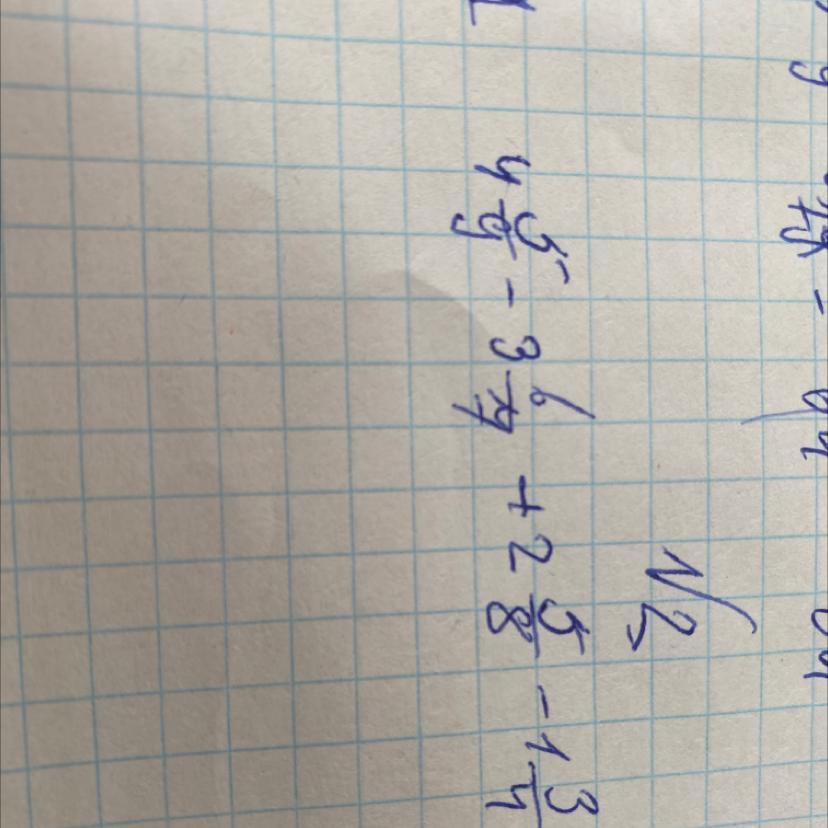 №2
4 5/9 - 3 6/7 + 2 5/8 - 1 3/4